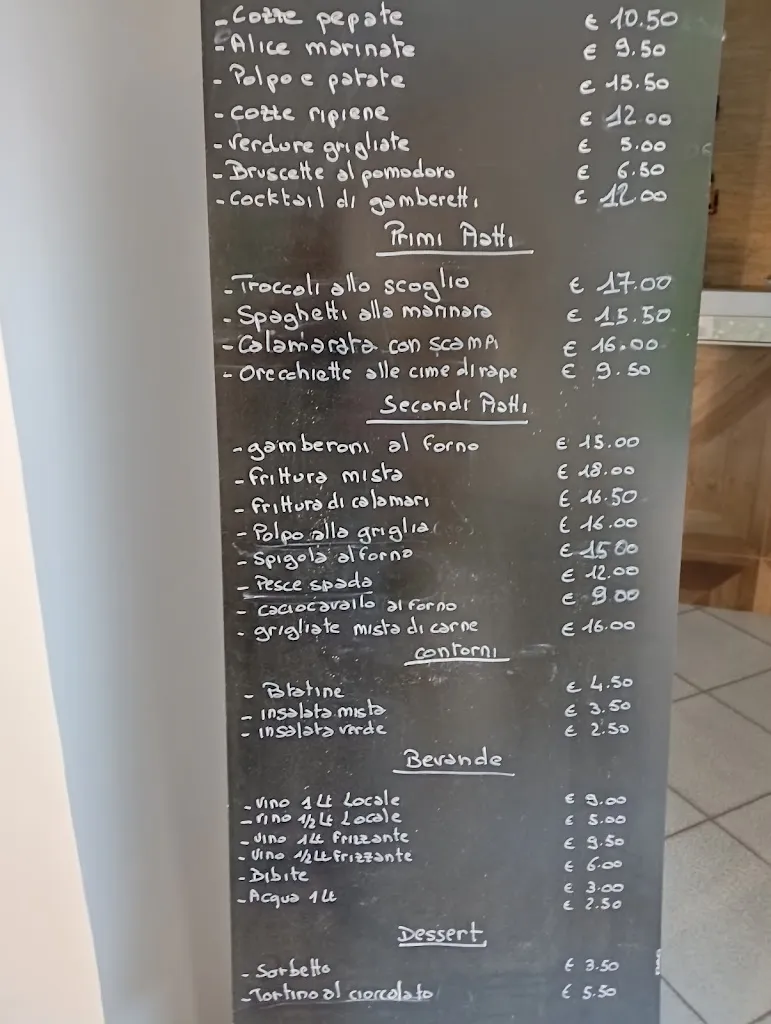 - Cozze pepate € 10.50
- Alice marinate € 9.50
- Polpo e patate € 15.50
- cozze ripiene € 12.00
- verdure grigliate € 5.00
- Bruscette al pomodoro € 6.50
- cocktail di gamberetti € 12.00
Primi Piatti
- Troccoli allo scoglio € 17.00
- Spaghetti alla marinara € 15.50
- Calamarata con scampi € 16.00
- Orecchiette alle cime di rape € 9.50
Secondi Piatti
- gamberoni al forno € 15.00
- frittura mista € 18.00
- frittura di calamari € 16.50
- Polpo alla griglia € 16.00
- Spigola al forno € 15 00
- Pesce spada € 12.00
- caciocavallo al forno € 9.00
- grigliate mista di carne € 16.00
contorni
- Ptatine € 4.50
- insalata mista € 3.50
- insalata verde € 2.50
Bevande
- vino 1 Lt Locale € 9.00
- vino 1/2 Lt Locale € 5.00
- vino 1 Lt frizzante € 9.50
- vino 1/2 Lt frizzante € 6.00
- Bibite € 3.00
- Acqua 1 Lt € 2.50
Dessert
- Sorbetto € 3.50
- Tortino al cioccolato € 5.50